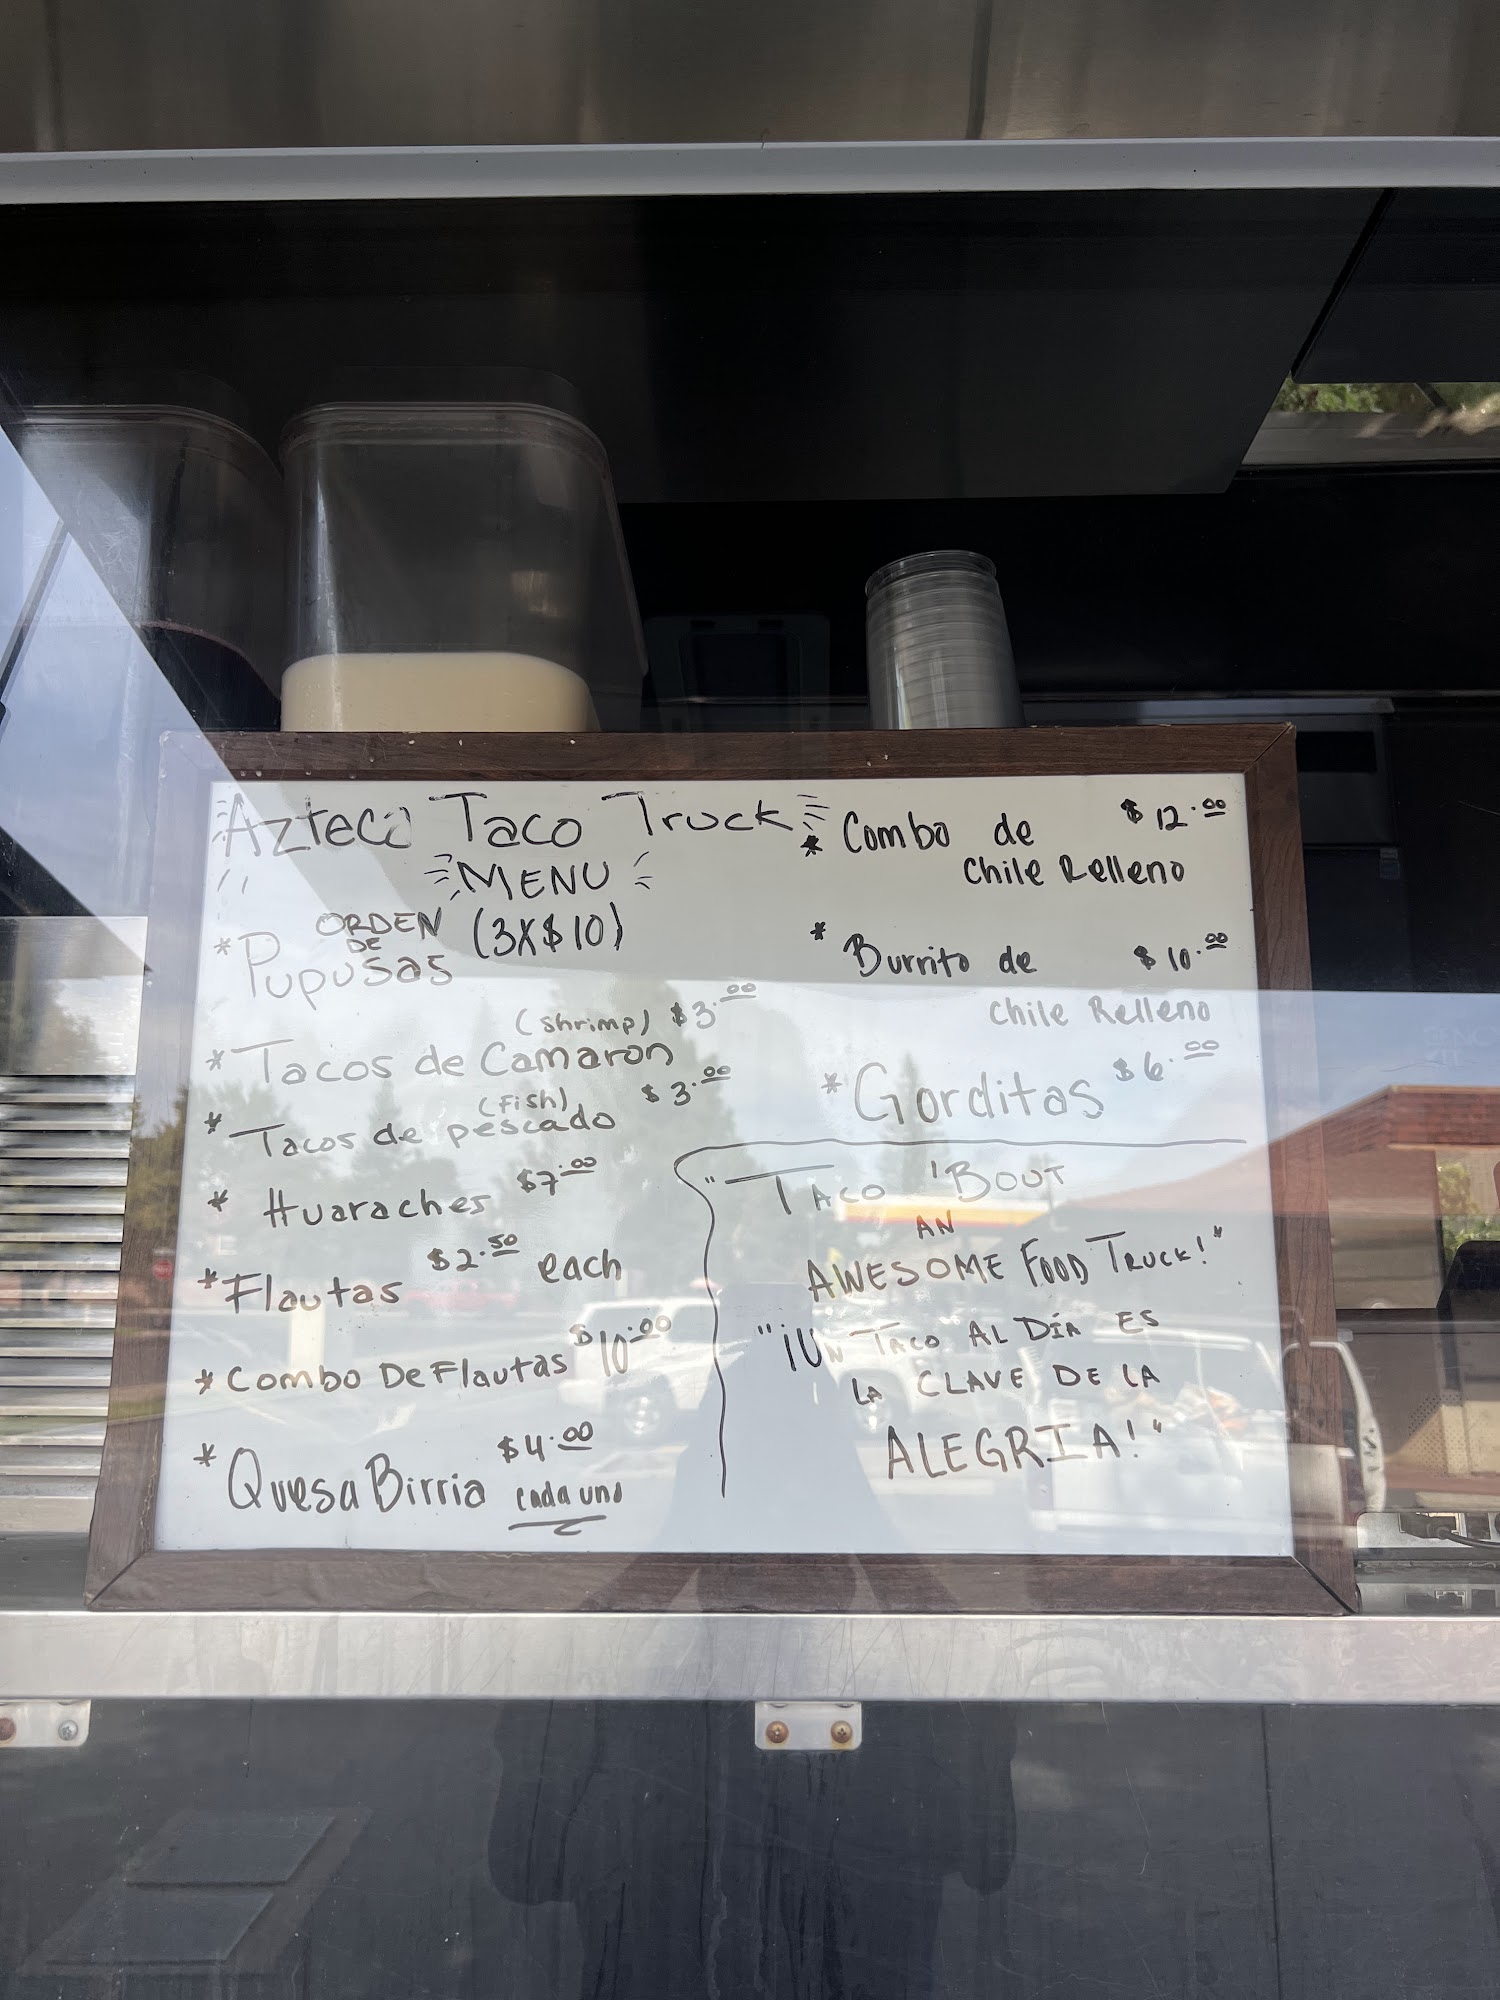 Azteca Taco Truck
MENU
* ORDEN DE Pupusas (3X$10)
* Tacos de Camaron (shrimp) $3.00
* Tacos de pescado (fish) $3.00
* Huaraches $7.00
* Flautas $2.50 each
* Combo De Flautas $10.00
* QuesaBirria $4.00 cada uno
* Combo de $12.00
Chile Relleno
* Burrito de $10.00
Chile Relleno
* Gorditas $6.00
"Taco 'Bout
AN
AWESOME FOOD TRUCK!"
"¡UN TACO AL DÍA ES
LA CLAVE DE LA
ALEGRIA!"